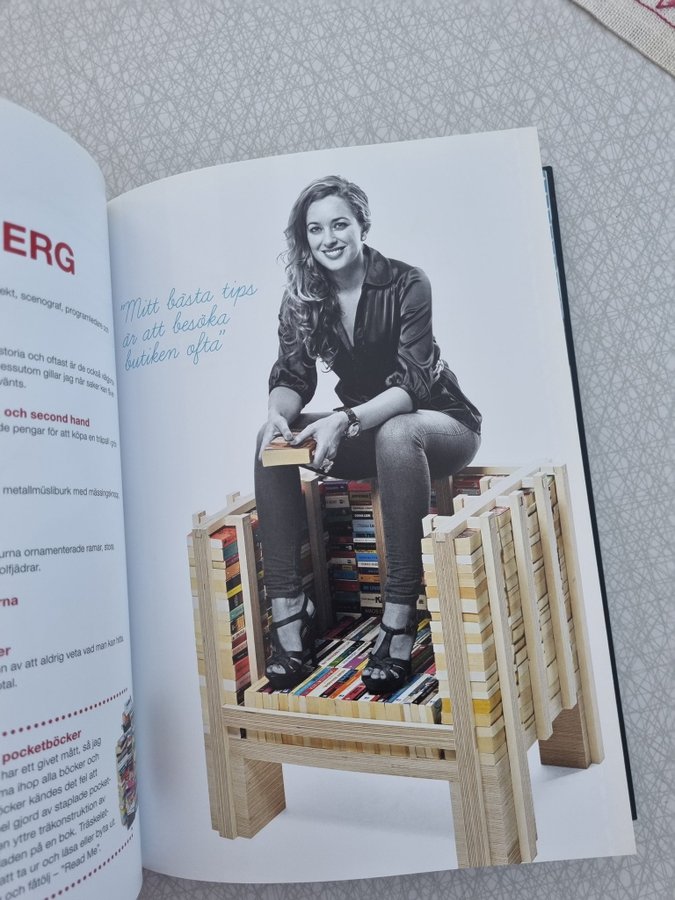 ERG
ekt, scenograf, programledare och
storia och oftast är de också
essutom gillar jag när saker kan
vänts.
och second hand
de pengar för att köpa en
metallmüsliburk med mässingsknopp,
urna ornamenterade ramar, stora
olfjädrar.
rna
er
n av att aldrig veta vad man kan hitta
otal.
pocketböcker
har ett givet mått, så jag
ma ihop alla böcker och
öcker kändes det fel att
el gjord av staplade pocket-
en yttre träkonstruktion av
laden på en bok. Träskelet-
att ta ur och läsa eller byta ut.
och fåtölj – "Read Me".
"Mitt bästa tips
är att besöka
butiken ofta"